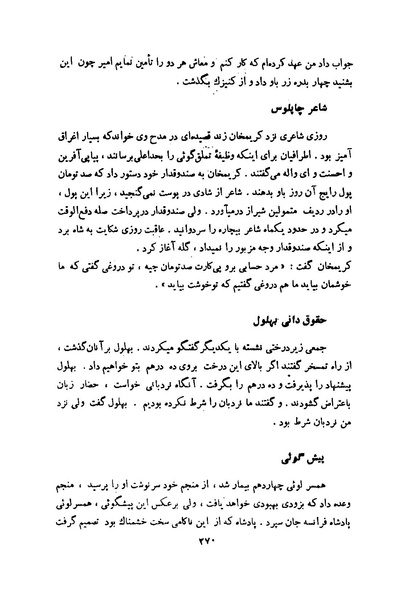 جواب داد من عهد کرده‌ام که کار کنم و معاش هر دو را تأمین نمایم امیر چون این
بشنید چهار بدره زر باو داد و از کنیزك بگذشت .
شاعر چاپلوس
روزی شاعری نزد کریمخان زند قصیده‌ای در مدح وی خواند که بسیار اغراق
آمیز بود . اطرافیان برای اینکه وظیفهٔ تملق‌گوئی را بحداعلی برسانند ، پیاپی آفرین
و احسنت و ای واله می‌گفتند . کریمخان به صندوقدار خود دستور داد که صد تومان
پول رایج آن روز باو بدهند . شاعر از شادی در پوست نمی‌گنجید ، زیرا این پول ،
او را در ردیف متمولین شیراز درمیآورد . ولی صندوقدار در پرداخت صله دفع‌الوقت
میکرد و در حدود یکماه شاعر بیچاره را سر دوانید . عاقبت روزی شکایت به شاه برد
و از اینکه صندوقدار وجه مزبور را نمیداد ، گله آغاز کرد .
کریمخان گفت : « مرد حسابی برو پی‌کارت صد تومان چیه ، تو دروغی گفتی که ما
خوشمان بیاید ما هم دروغی گفتیم که توخوشت بیاید » .
حقوق دانی بهلول
جمعی زیر درختی نشسته با یکدیگر گفتگو میکردند . بهلول بر آنان گذشت ،
از راه تمسخر گفتند اگر بالای این درخت بروی ده درهم بتو خواهیم داد . بهلول
پیشنهاد را پذیرفت و ده درهم را بگرفت . آنگاه نردبانی خواست ، حضار زبان
باعتراض گشودند . و گفتند ما نردبان را شرط نکرده بودیم . بهلول گفت ولی نزد
من نردبان شرط بود .
پیش گوئی
همسر لوئی چهاردهم بیمار شد ، از منجم خود سرنوشت او را پرسید ، منجم
وعده داد که بزودی بهبودی خواهد یافت ، ولی برعکس این پیشگوئی ، همسر لوئی
پادشاه فرانسه جان سپرد . پادشاه که از این ناکامی سخت خشمناك بود تصمیم گرفت
۲۷۰